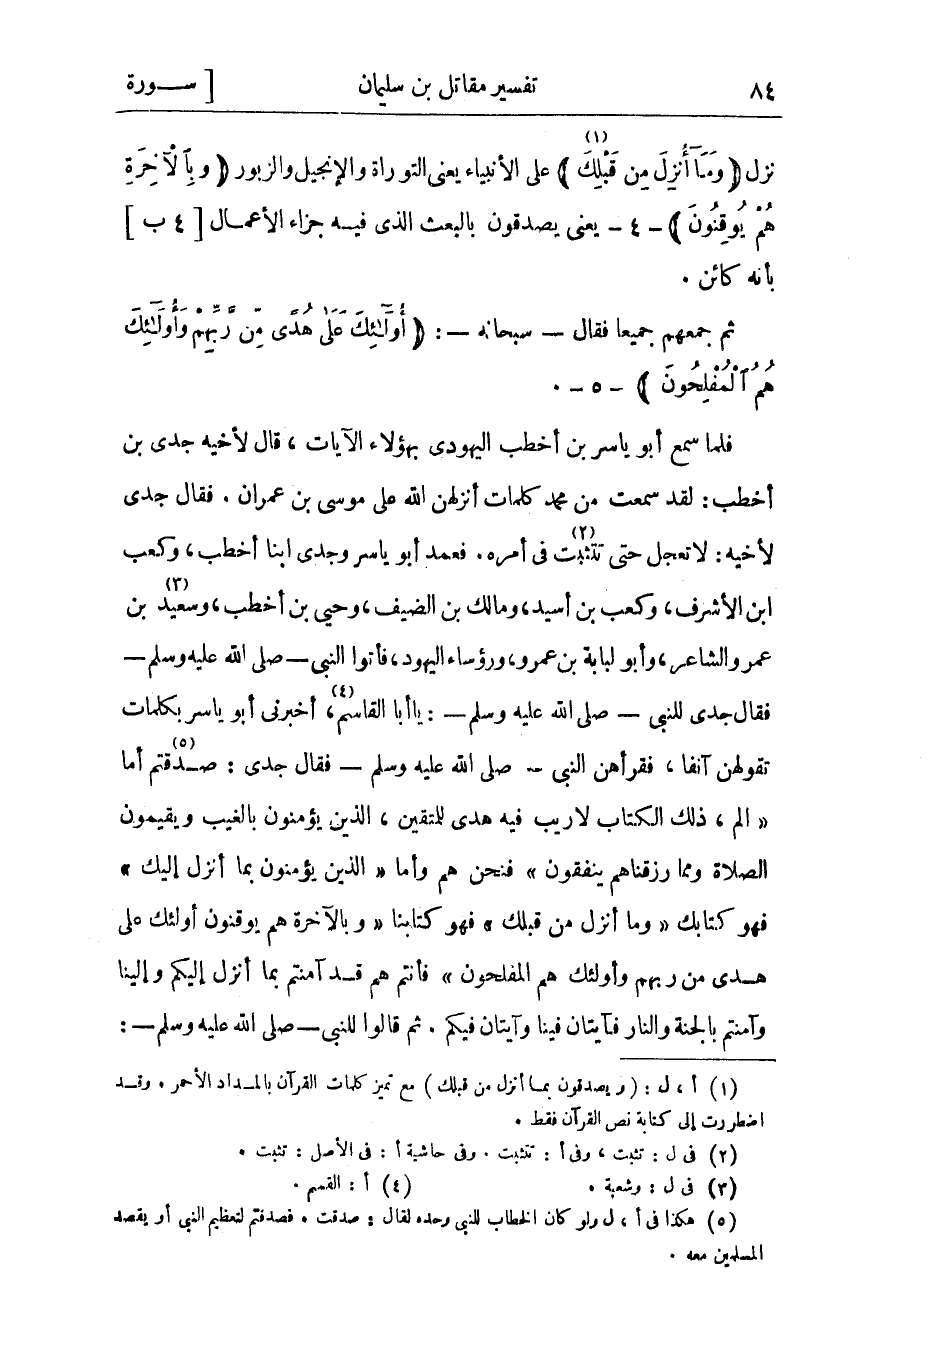 ٨٤ تفسير مقاتل بن سليمان [ ســـورة
نزل ﴿ وَمَآ أُنزِلَ مِن قَبْلِكَ (١) ﴾ على الأنبياء يعنى التوراة والإنجيل والزبور ﴿ وبِٱلْآخِرَةِ
هُمْ يُوقِنُونَ ﴾ - ٤ - يعنى يصدقون بالبعث الذى فيــه جزاء الأعمــال [ ٤ ب ]
بأنه كائن .
ثم جمعهم جميعا فقال — سبحانه —: ﴿ أُولَٰٓئِكَ عَلَىٰ هُدًى مِّن رَّبِّهِمْ وَأُولَٰٓئِكَ
هُمُ ٱلْمُفْلِحُونَ ﴾ - ٥ - .
فلما سمع أبو ياسر بن أخطب اليهودى بهؤلاء الآيات ، قال لأخيه جدى بن
أخطب : لقد سمعت من محمد كلمات أنزلهن الله على موسى بن عمران . فقال جدى
لأخيه : لا تعجل حتى تتثبت (٢) فى أمره . فعمد أبو ياسر وجدى ابنا أخطب ، وكعب
ابن الأشرف ، وكعب بن أسيد ، ومالك بن الضيف ، وحيى بن أخطب ، وسعيد (٣) بن
عمرو الشاعر ، وأبو لبابة بن عمرو ، ورؤساء اليهود ، فأتوا النبى — صلى الله عليه وسلم —
فقال جدى للنبى — صلى الله عليه وسلم — : يا أبا القاسم (٤) ، أخبرنى أبو ياسر بكلمات
تقولهن آنفا ، فقرأهن النبى — صلى الله عليه وسلم — فقال جدى : صــدقتم (٥) أما
« الم ، ذلك الكتاب لا ريب فيه هدى للمتقين ، الذين يؤمنون بالغيب ويقيمون
الصلاة ومما رزقناهم ينفقون » فنحن هم وأما « الذين يؤمنون بما أنزل إليك »
فهو كتابك « وما أنزل من قبلك » فهو كتابنا « وبالآخرة هم يوقنون أولئك على
هــدى من ربهم وأولئك هم المفلحون » فأنتم هم قــد آمنتم بما أنزل إليكم وإلينا
وآمنتم بالجنة والنار فآيتان فينا وآيتان فيكم . ثم قالوا للنبى — صلى الله عليه وسلم — :
(١) أ ، ل : ( ويصدقون بمــا أنزل من قبلك ) مع تميز كلمات القرآن بالمــداد الأحمر . وقــد
اضطررت إلى كتابة نص القرآن فقط .
(٢) فى ل : تثبت ، وفى أ : تتثبت . وفى حاشية أ : فى الأصل : تثبت .
(٣) فى ل : وشعبة . (٤) أ : القسم .
(٥) هكذا فى أ ، ل ولو كان الخطاب للنبى وحده لقال : صدقت . فصدقتم لتعظيم النبى أو يقصد
المسلمين معه .